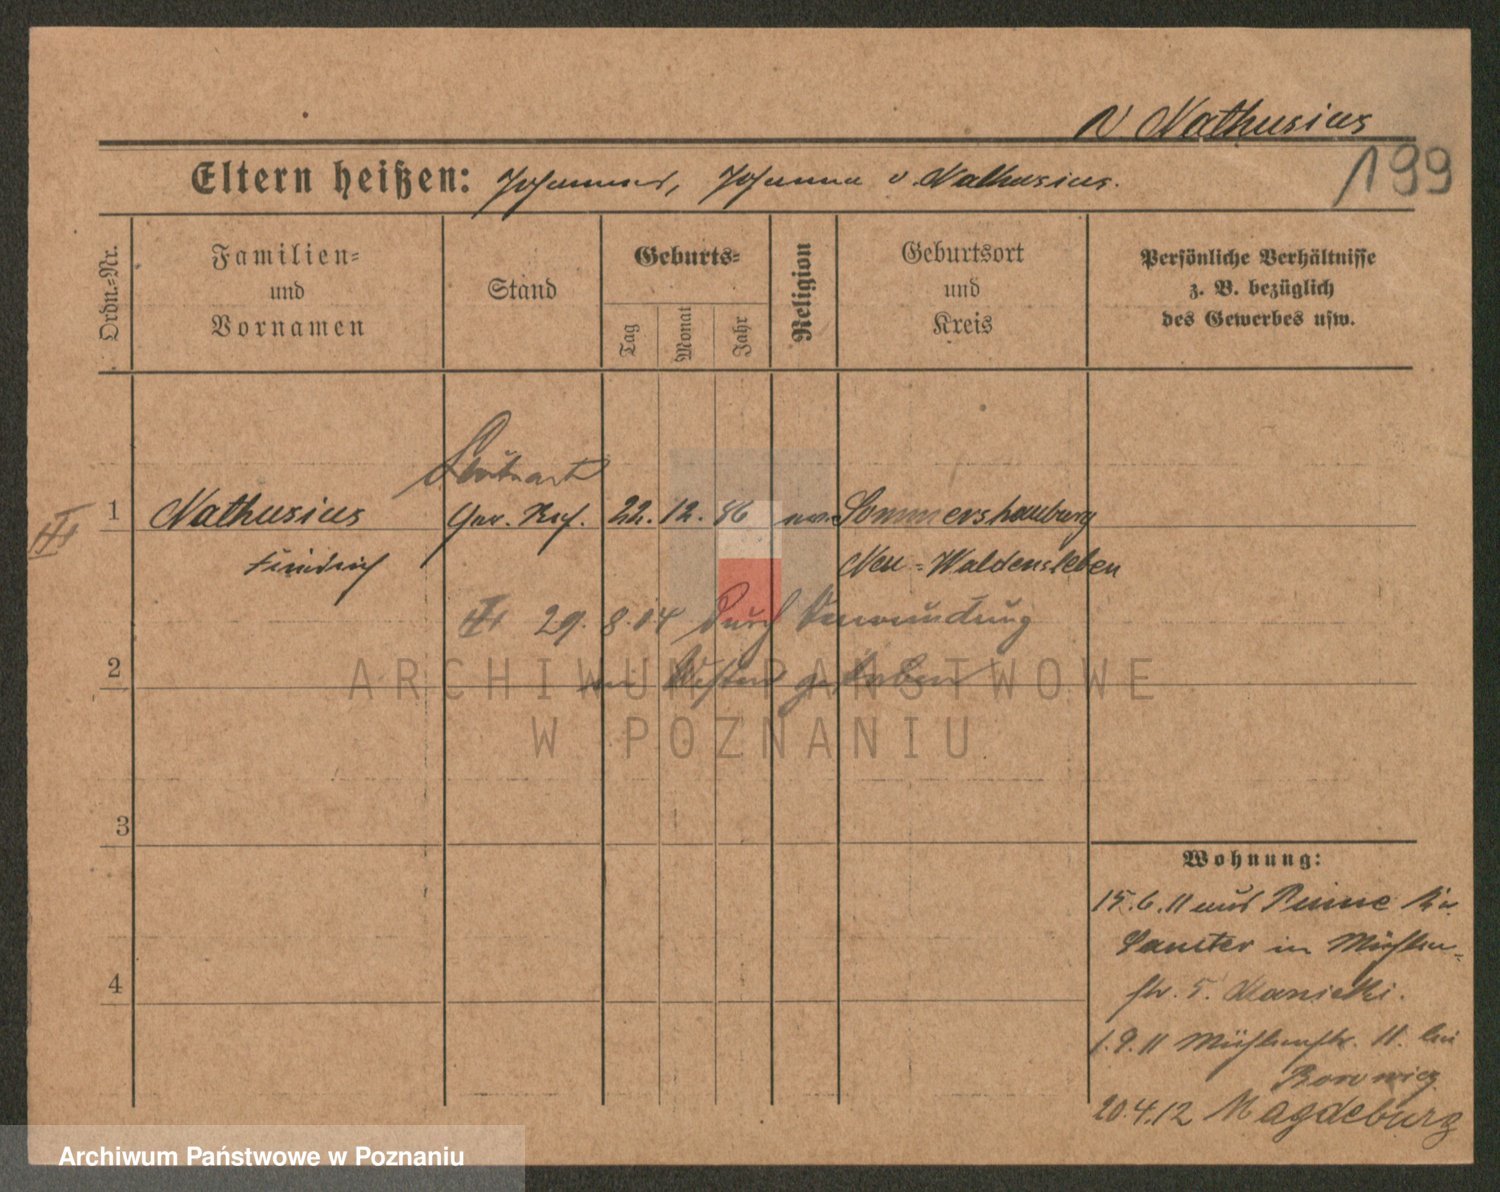 v Nathusius
199
Eltern heißen: Johannes, Johanna v. Nathusius.
Ordn.-Nr.
Familien-
und
Vornamen
Stand
Geburts-
Tag
Monat
Jahr
Religion
Geburtsort
und
Kreis
Persönliche Verhältnisse
z. B. bezüglich
des Gewerbes usw.
Leutnant
1 Nathusius Ger. Ref. 22. 12. 86 ev. Sommerschenburg
Neu-Waldensleben
29. 8. 14 durch Verwundung
2
im Westen gestorben
ARCHIWUM PAŃSTWOWE
W POZNANIU
3
Wohnung:
15.6.11 aus Pinne Kr.
Samter in Mühlen-
4
str. 5.
1.9.11 Mühlenstr. 11. bei
20.4.12 Magdeburg
Archiwum Państwowe w Poznaniu